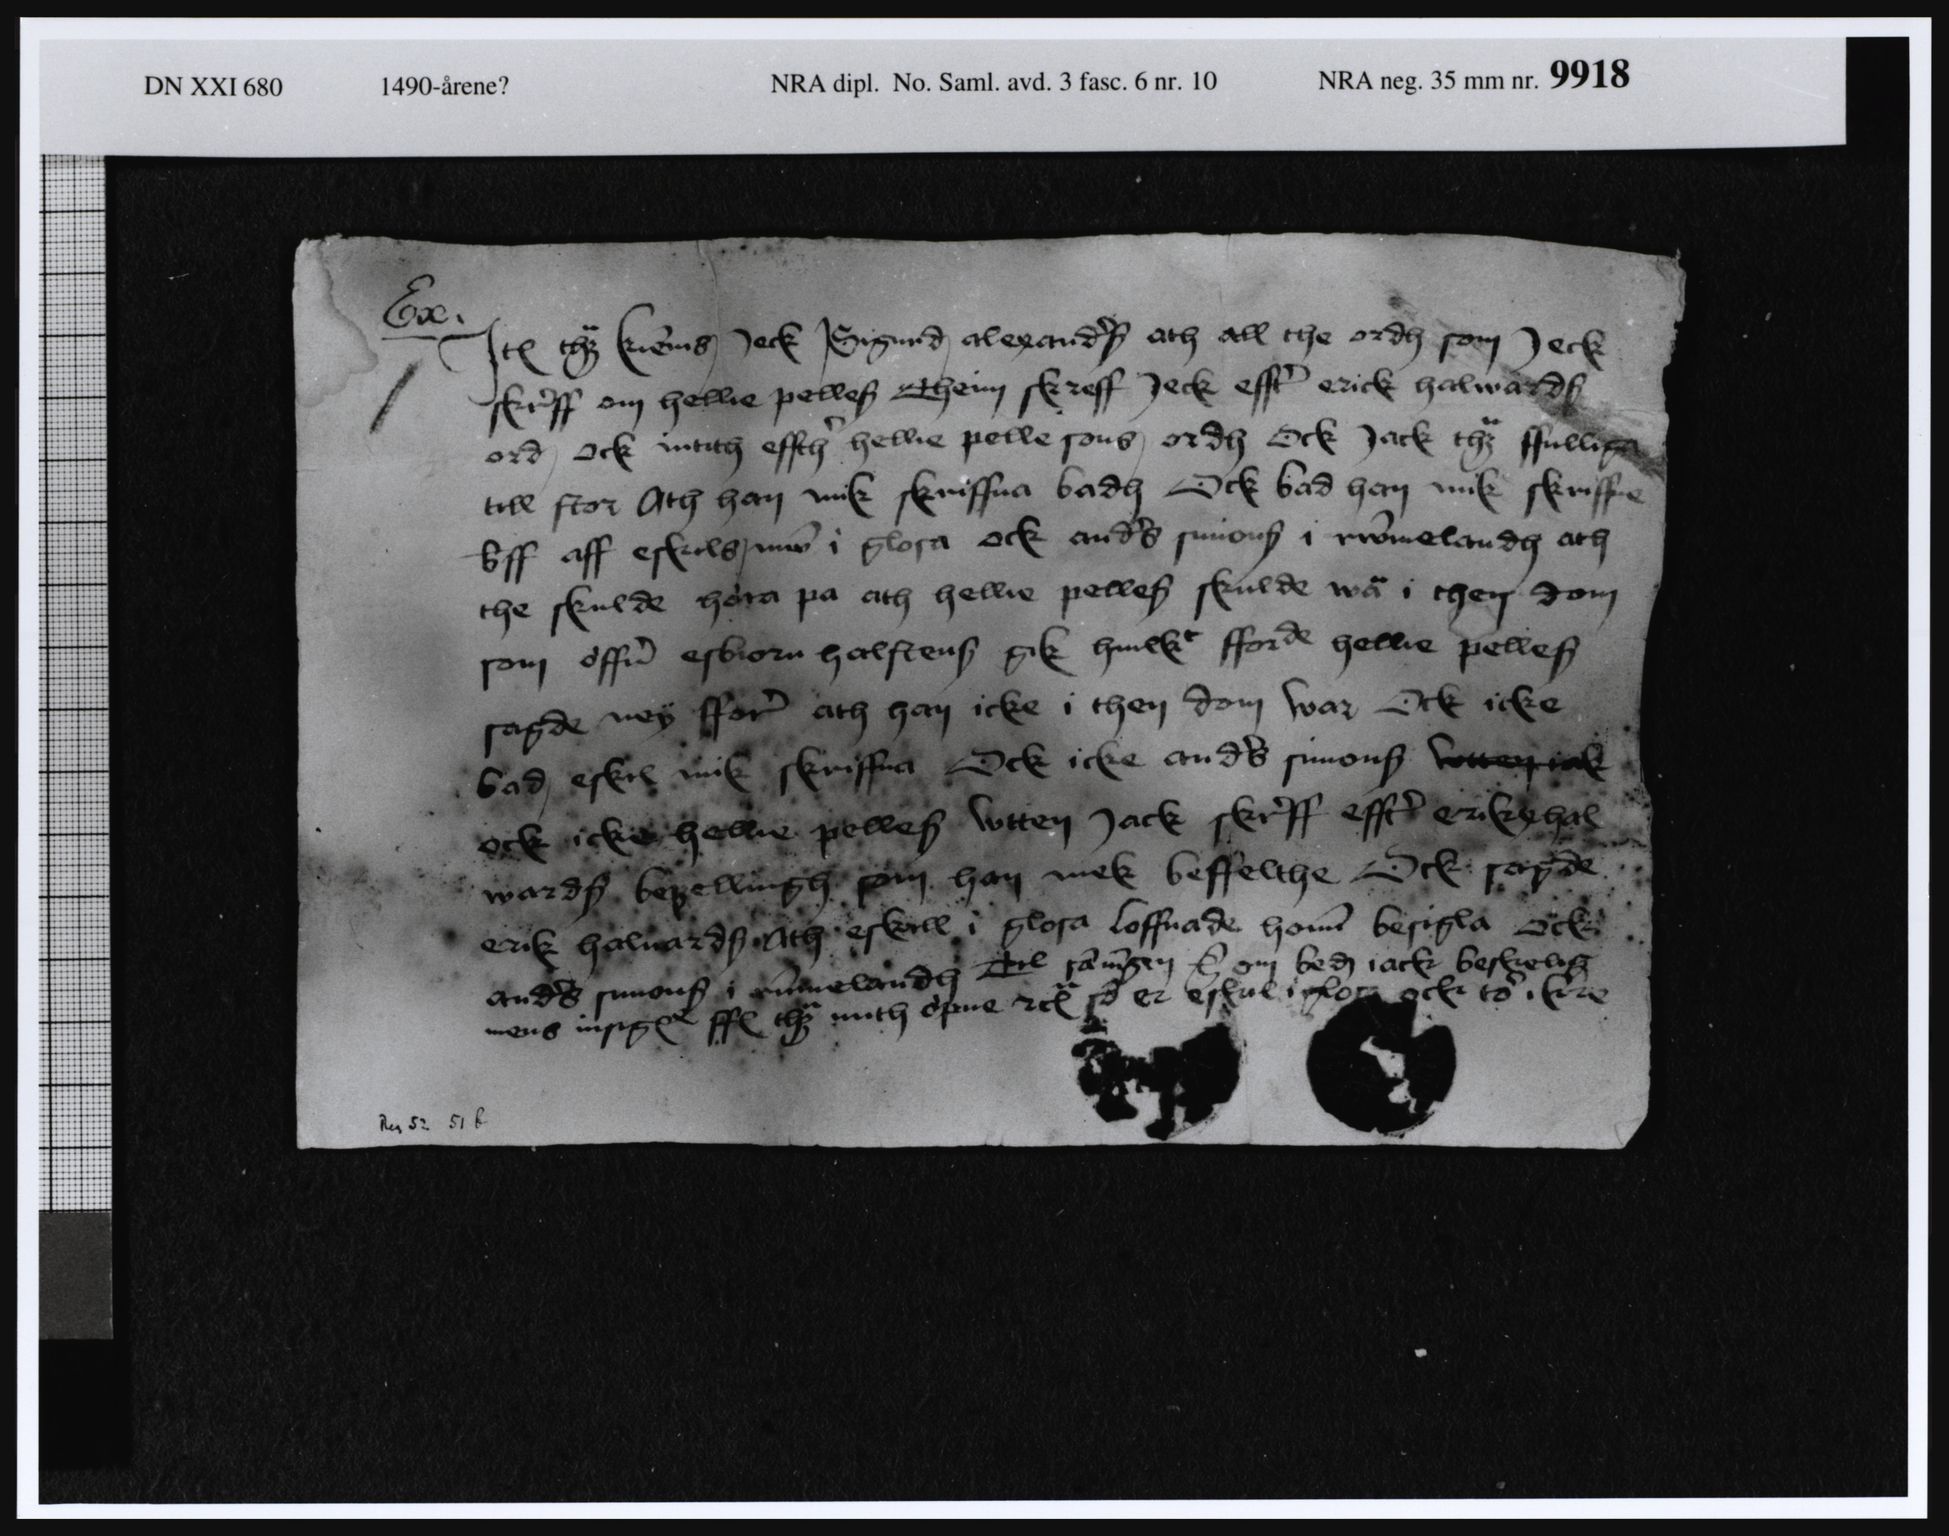 DN XXI 680 1490-årene? NRA dipl. No. Saml. avd. 3 fasc. 6 nr. 10 NRA neg. 35 mm nr. 9918
Ex.
Jtem thz kennis Jeck Sigurd alexanders ath all the ordh som Jeck
skreff om hellie pelles Theim skreff Jeck effter erick halwards
ord ock intith effther hellie pelle sons ordh Ock Jack thz ffulliga
till stor Ath han mik skriffua badh Ock bad han mik skriffue
bff aff eskils i glosa ock anders simons i rwmelandh ath
the skulde höra pa ath hellie pelles skulde wara i then dom
som öffuer esbiorn halstens gik huilket fforde hellie pelles
sagde ney fforer ath han icke i then dom war Ock icke
bad eskil mik skriffua Ock icke anders simons wtten iak
ock icke hellie pelles wtten Jack skreff effter erik hal
wards befellingh som han mek beffelthe Ock sagde
erik haluards Ath eskill i glosa loffuade honum besigla ock
anders simons i rwmelandh Til om bedz iack beskelig
mens insigle ffor thz mith öpne er eskil i glosa ock
Reg 52 51 b